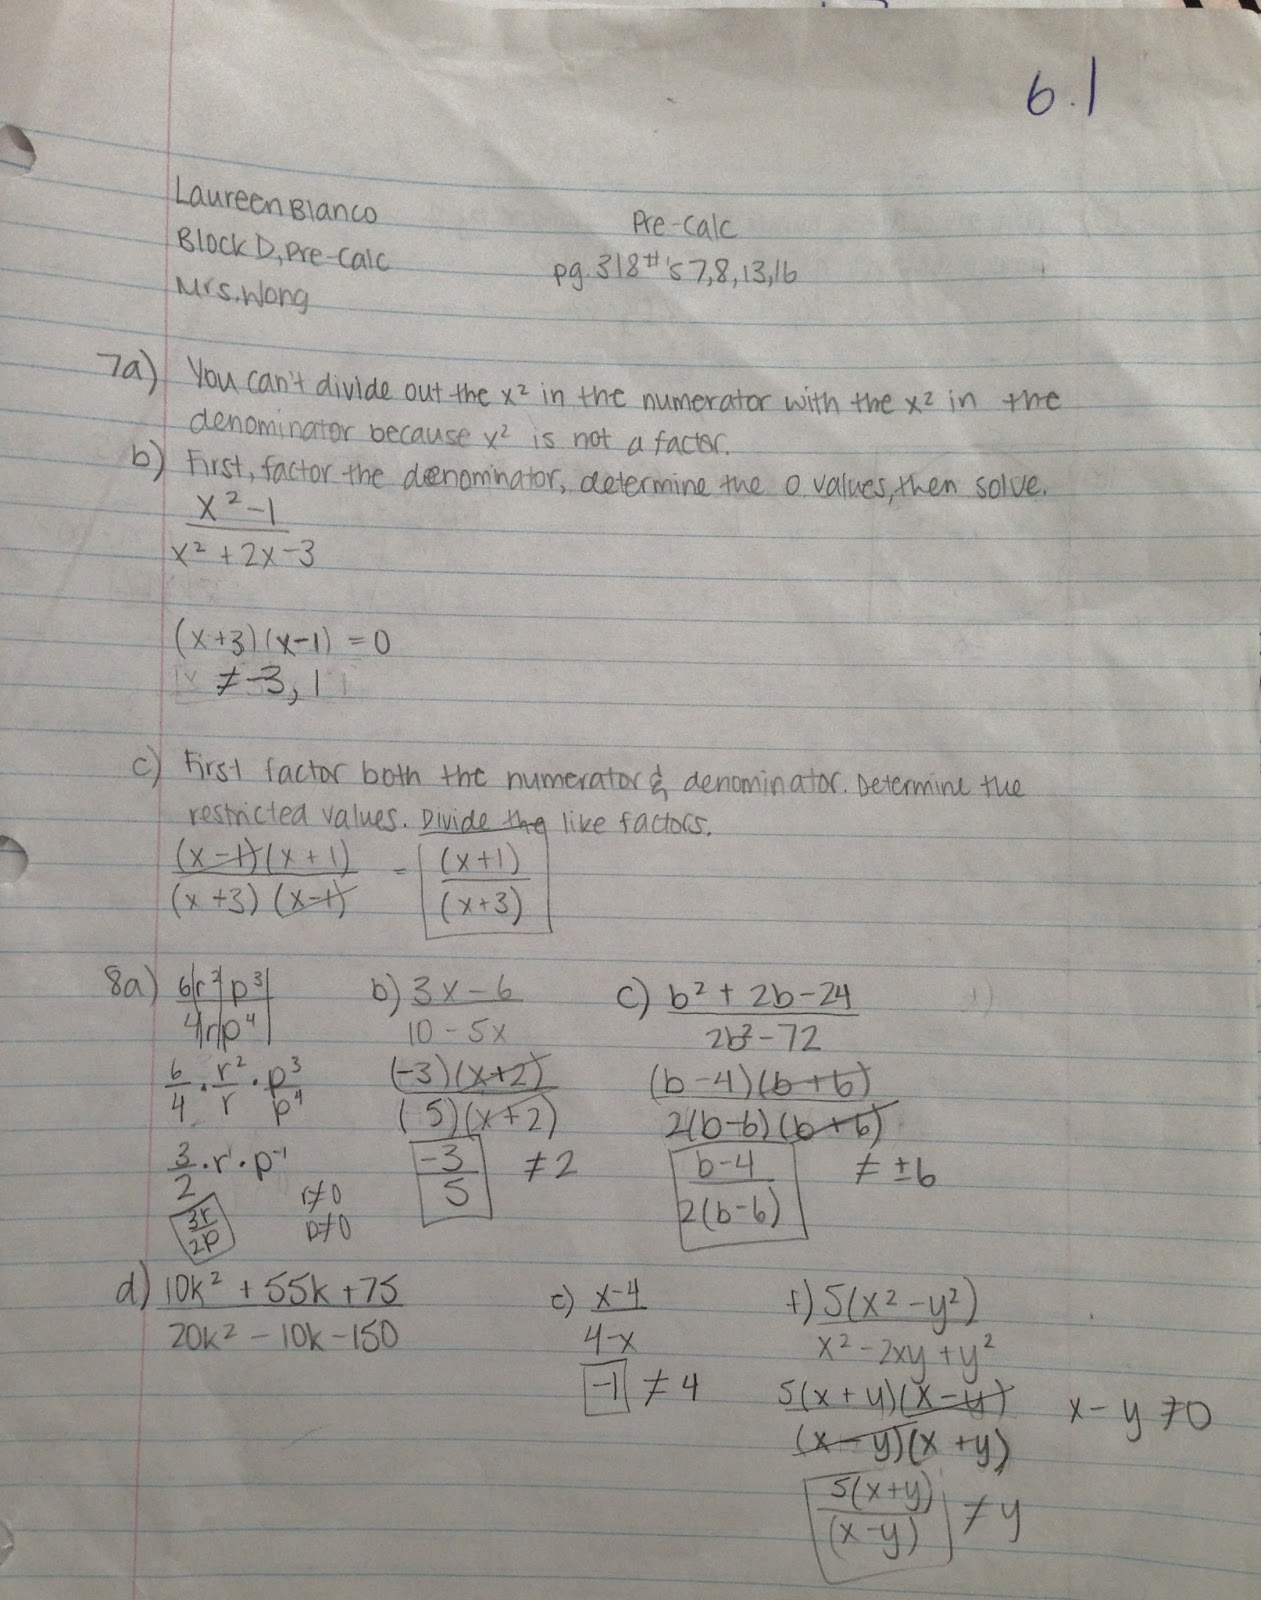 6.1
Laureen Blanco
Block D, Pre-Calc
Mrs. Wong
Pre-Calc
pg. 318 #'s 7,8,13,16
7a) You can't divide out the x² in the numerator with the x² in the
denominator because x² is not a factor.
b) First, factor the denominator, determine the 0 values, then solve.
x² - 1
x² + 2x - 3
(x+3)(x-1) = 0
x ≠ -3, 1
c) First factor both the numerator & denominator. Determine the
restricted values. Divide the like factors.
(x-1)(x+1) = (x+1)
(x+3)(x-1) (x+3)
8a) 6r²p³
4rp⁴
6/4 · r²/r · p³/p⁴
3/2 · r¹ · p⁻¹
3r
2p
r≠0
p≠0
b) 3x-6
10-5x
(-3)(x+2)
(5)(x+2)
-3
5
≠ 2
c) b² + 2b - 24
2b² - 72
(b-4)(b+6)
2(b-6)(b+6)
b-4
2(b-6)
≠ ±6
d) 10k² + 55k + 75
20k² - 10k - 150
e) x-4
4-x
-1 ≠ 4
f) 5(x² - y²)
x² - 2xy + y²
5(x+y)(x-y)
(x-y)(x+y)
x - y ≠ 0
5(x+y)
(x-y)
≠ y